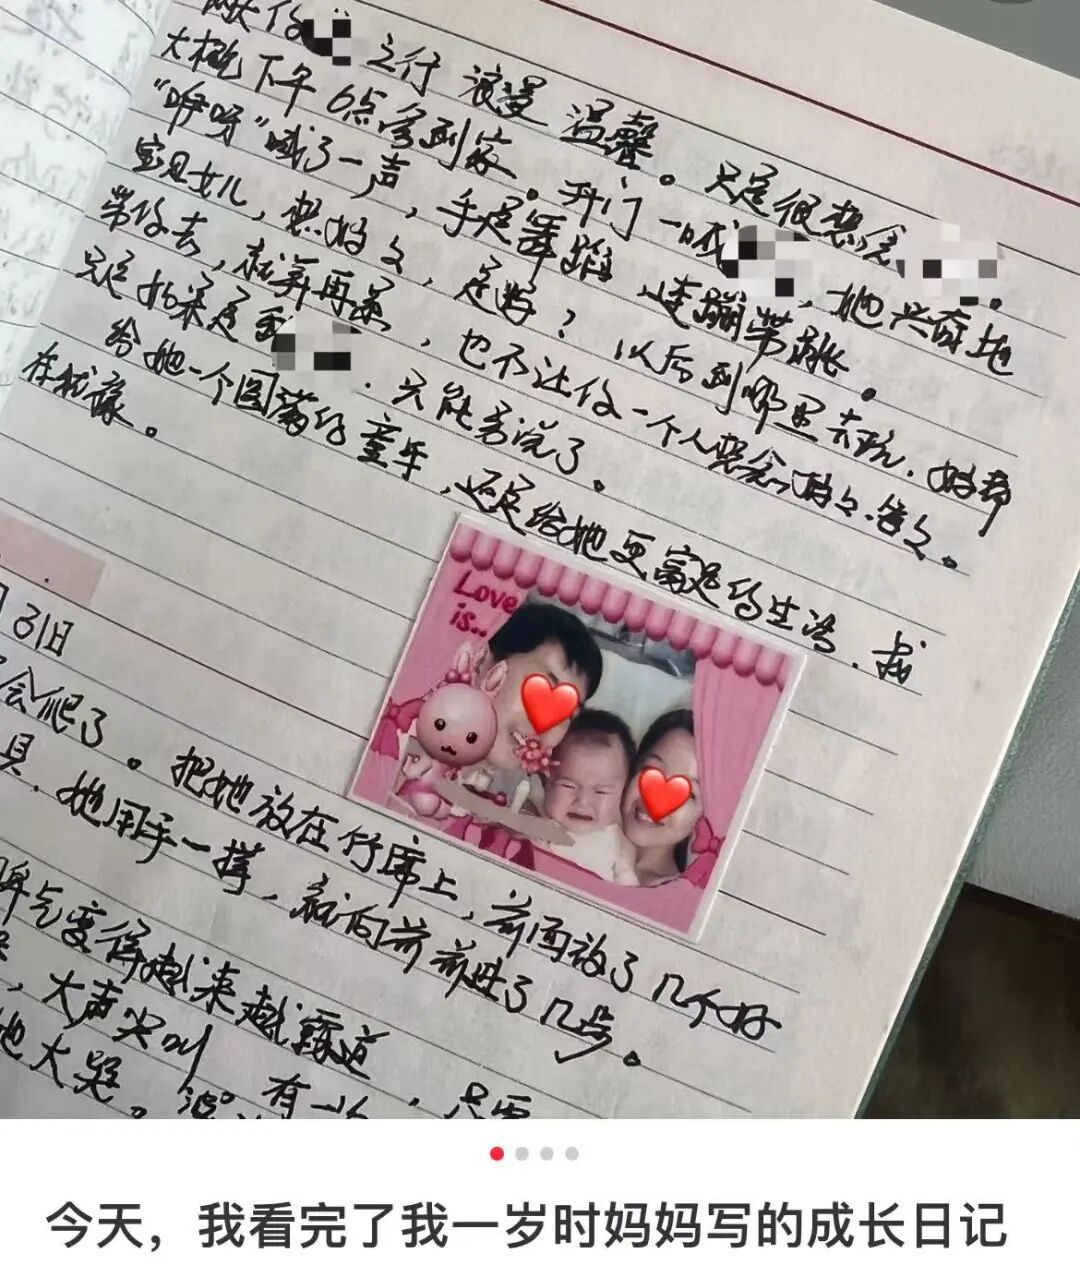 之行 浪漫 温馨。只是很想念
大概下午6点多到家。开门一喊 ，她兴奋地
"咿呀"喊了一声，手足舞蹈 连蹦带跳。
宝贝女儿，想妈々，是吗？以后到哪里去玩，妈都
带你去，就算再累，也不让你一个人想念妈々、爸々。
只是如果是 ，只能另说了。
给她一个圆满的童年，还是给她更富足的生活，我
在犹豫。
Love
is..
31日
会爬了。把她放在竹席上，前面放了几个好
具，她用手一撑，就向前前进了几步。
脾气变得越来越霸道，只要
，大声尖叫 有一
她大哭。
今天，我看完了我一岁时妈妈写的成长日记